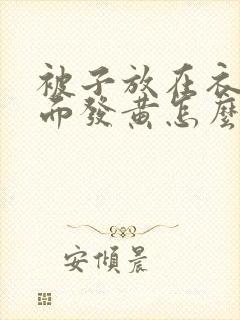 被子放在衣
而發黃怎麼
安傾晨